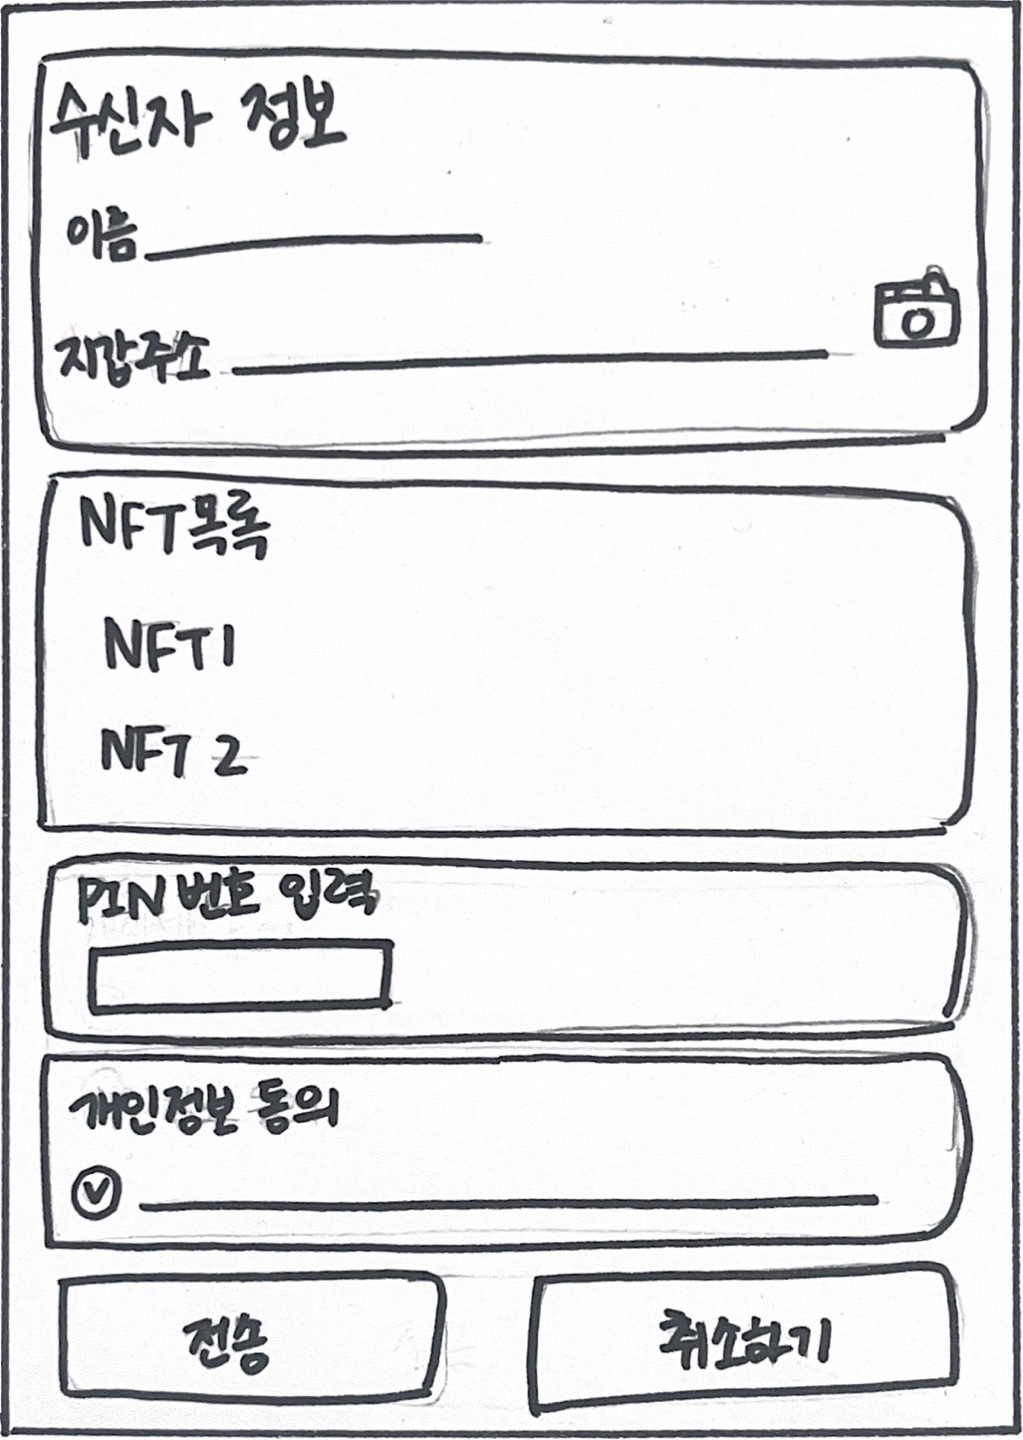 수신자 정보
이름
지갑주소
NFT목록
NFT1
NFT 2
PIN 번호 입력
개인정보 동의
전송
취소하기